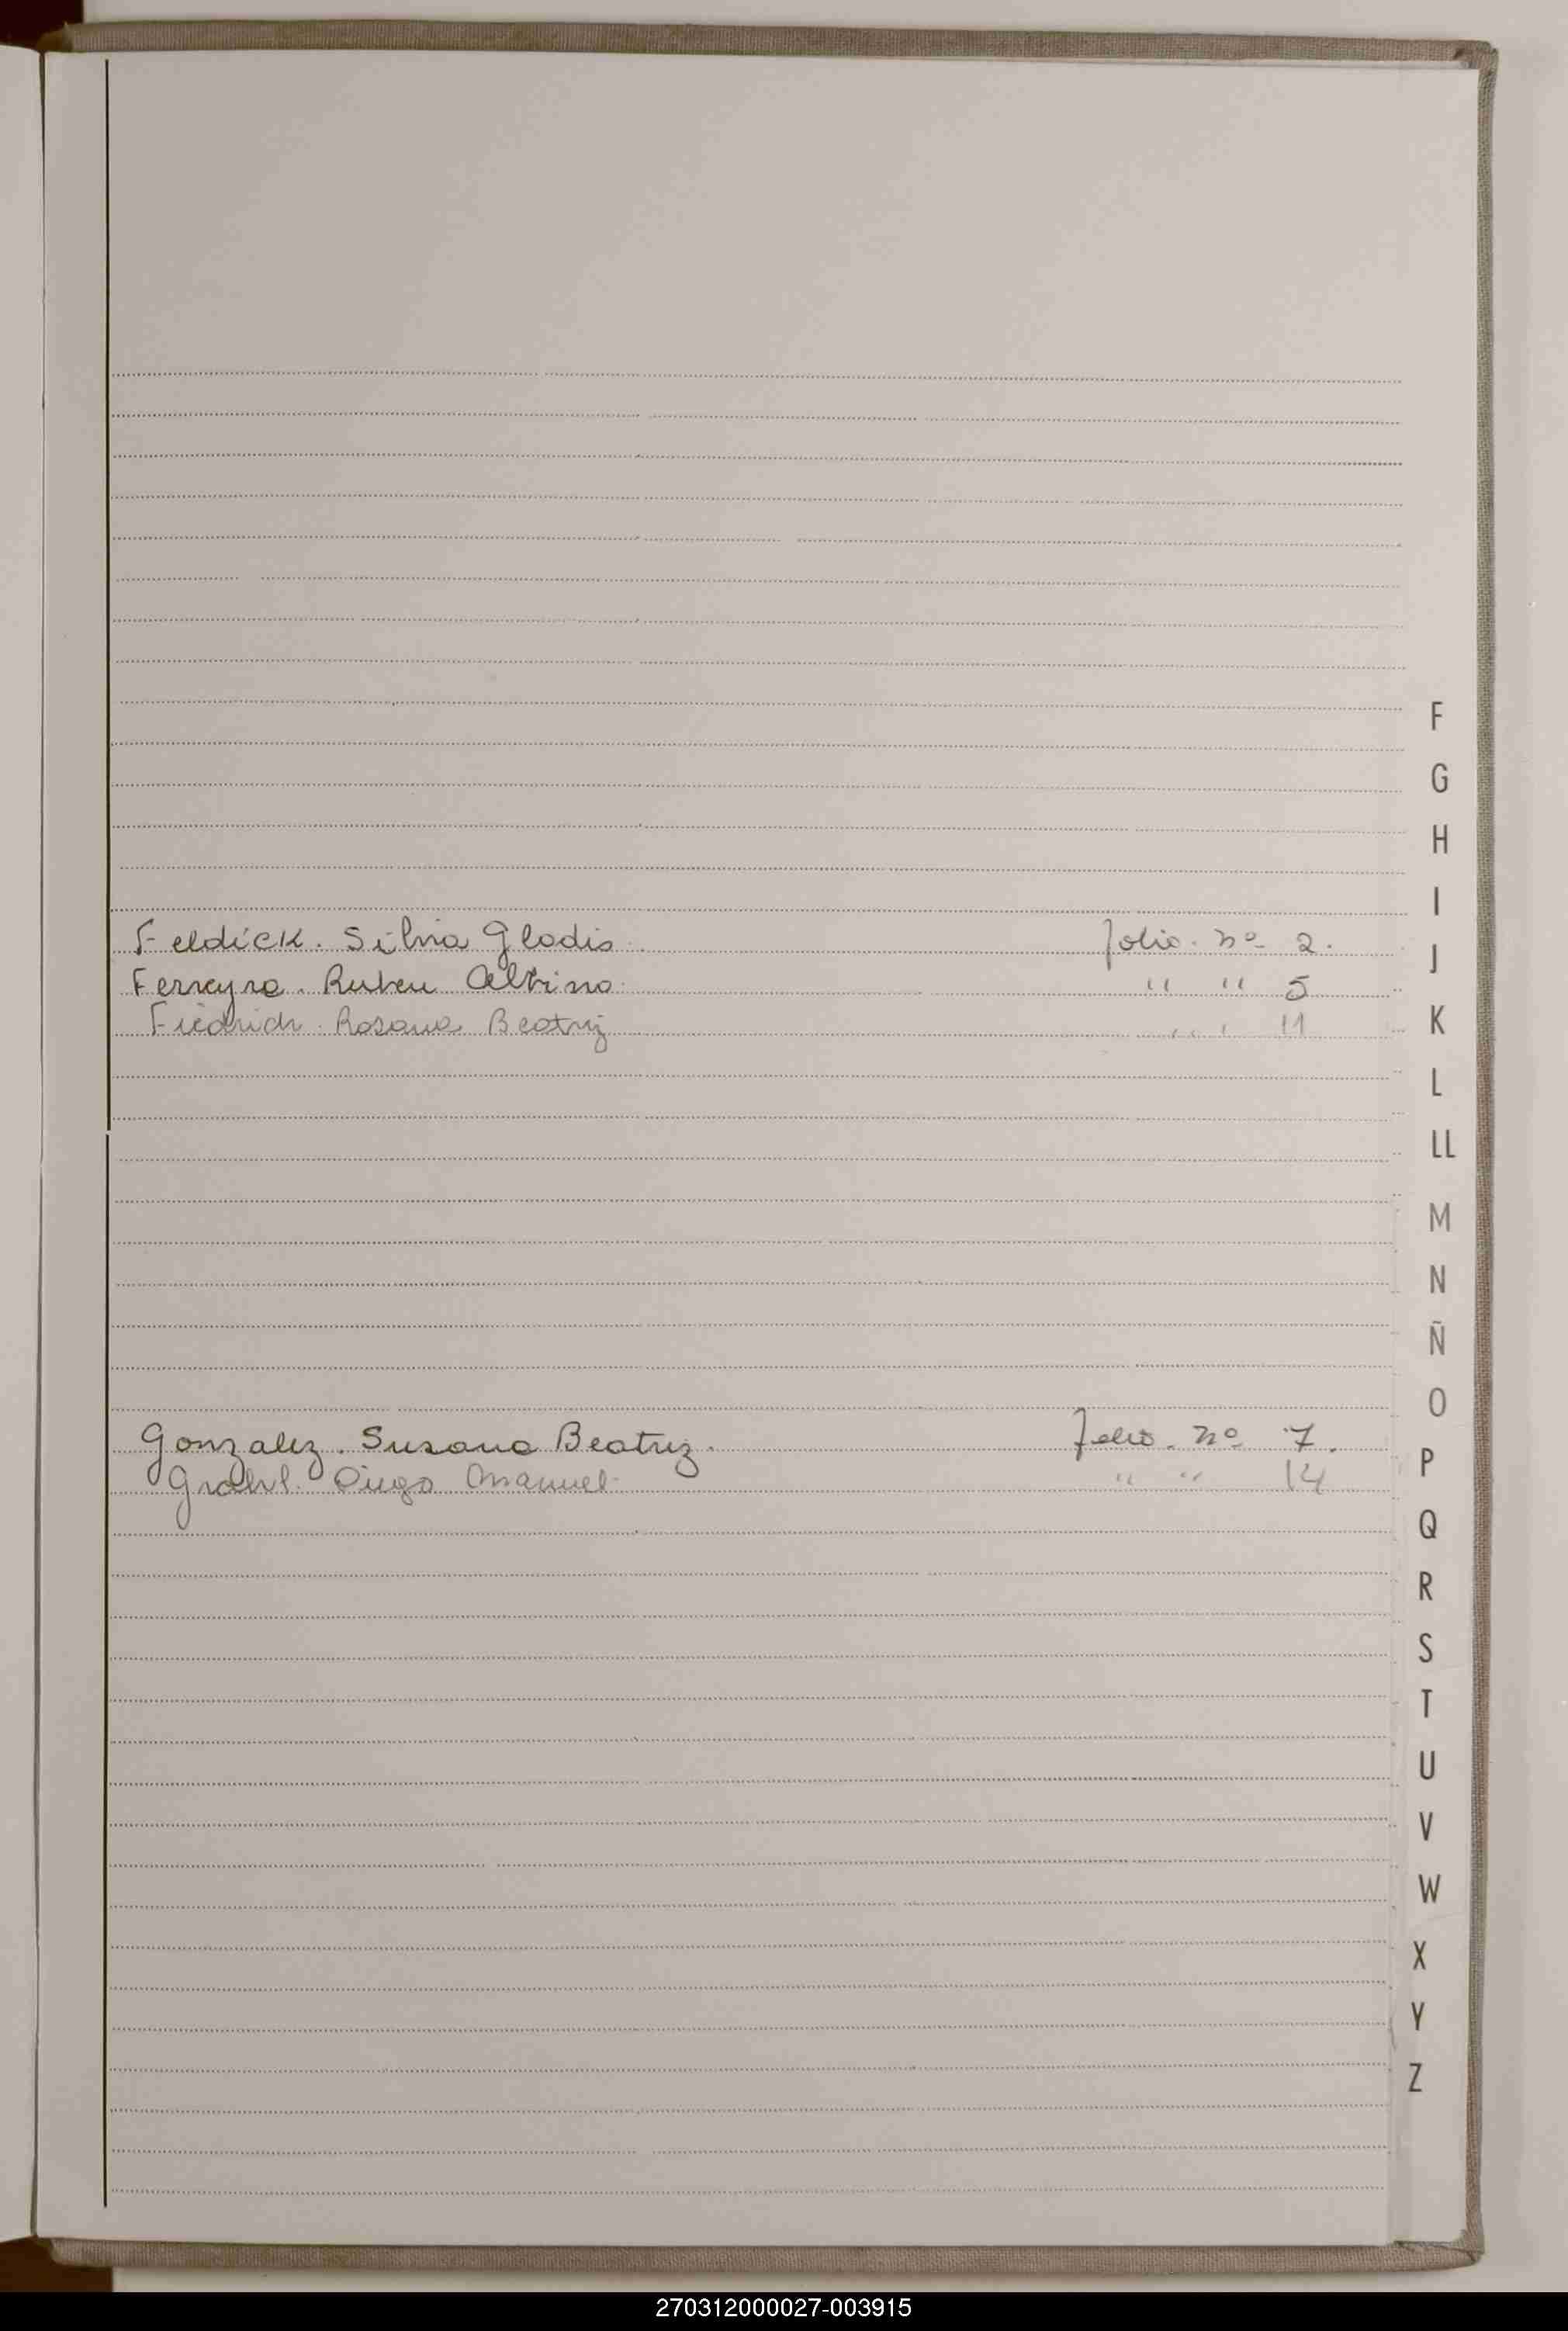 F
G
H
I
Feldick. Silvia Gladis folio. nº 2.
J
Ferreyra. Ruben Albino " " 5
Fiedrich. Rosana Beatriz " " 11
K
L
LL
M
N
Ñ
O
Gonzalez. Susana Beatriz. folio. nº 7.
P
Diego Manuel " " 14
Q
R
S
T
U
V
W
X
Y
Z
270312000027-003915